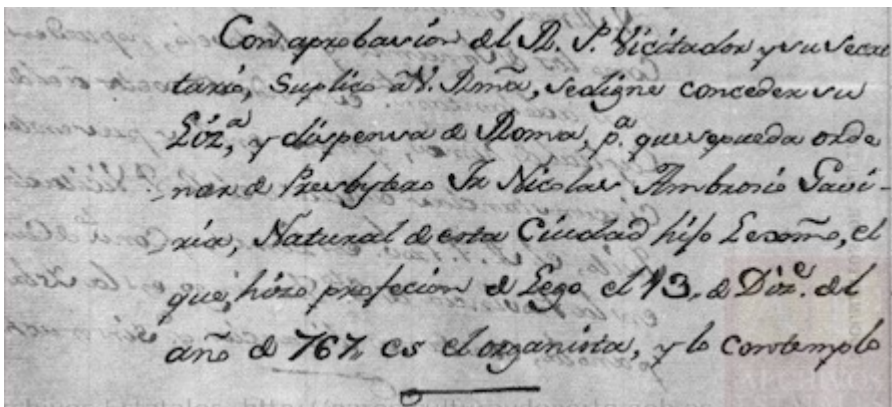 Con aprobacion del R. P. Vicitador y su Secre
tario, Suplico à V. Rmã, se digne conceder su
Liz.ª, y dispensa de Roma, p.ª que se pueda orde
nar de Presbytero Fr Nicolas Ambrosio Gavi-
ria, Natural de esta Ciudad hijo Lexmo, el
que, hizo profecion de Lego el 13, de Diz.e del
año de 767, es el organista, y lo contemplo